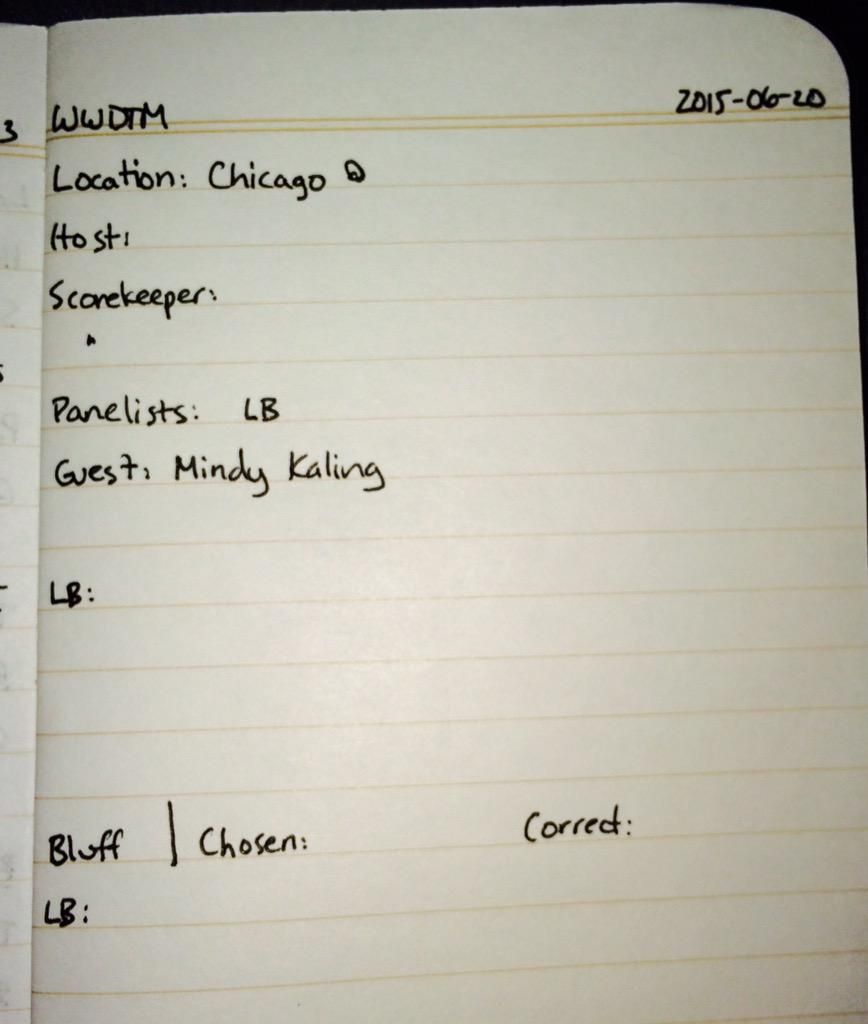 WWDTM 2015-06-20
Location: Chicago
Host:
Scorekeeper:
"
Panelists: LB
Guest: Mindy Kaling
LB:
Bluff | Chosen: Correct:
LB: